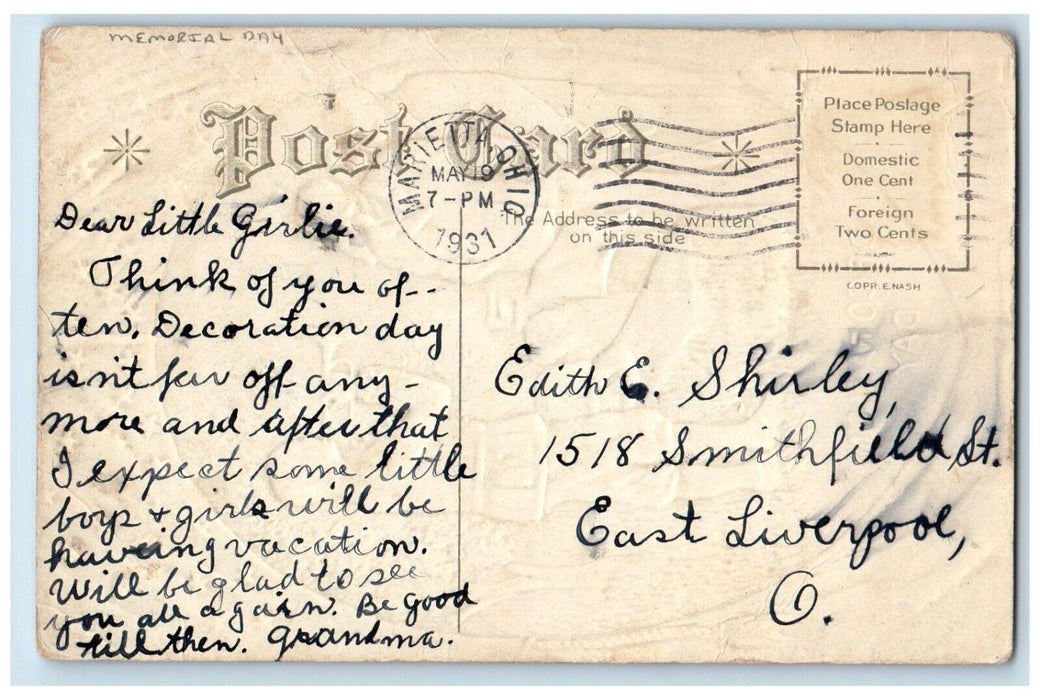 MEMORIAL DAY
Post Card
MARIETTA OHIO
MAY 19
7-PM
1931
Place Postage
Stamp Here
Domestic
One Cent
Foreign
Two Cents
COPR. E. NASH
The Address to be written
on this side
Dear Little Girlie.
Think of you of--
ten. Decoration day
isn't far off any-
more and after that
I expect some little
boys & girls will be
haveing vacation.
Will be glad to see
you all again. Be good
till then. Grandma.
Edith E. Shirley,
1518 Smithfield St.
East Liverpool,
O.